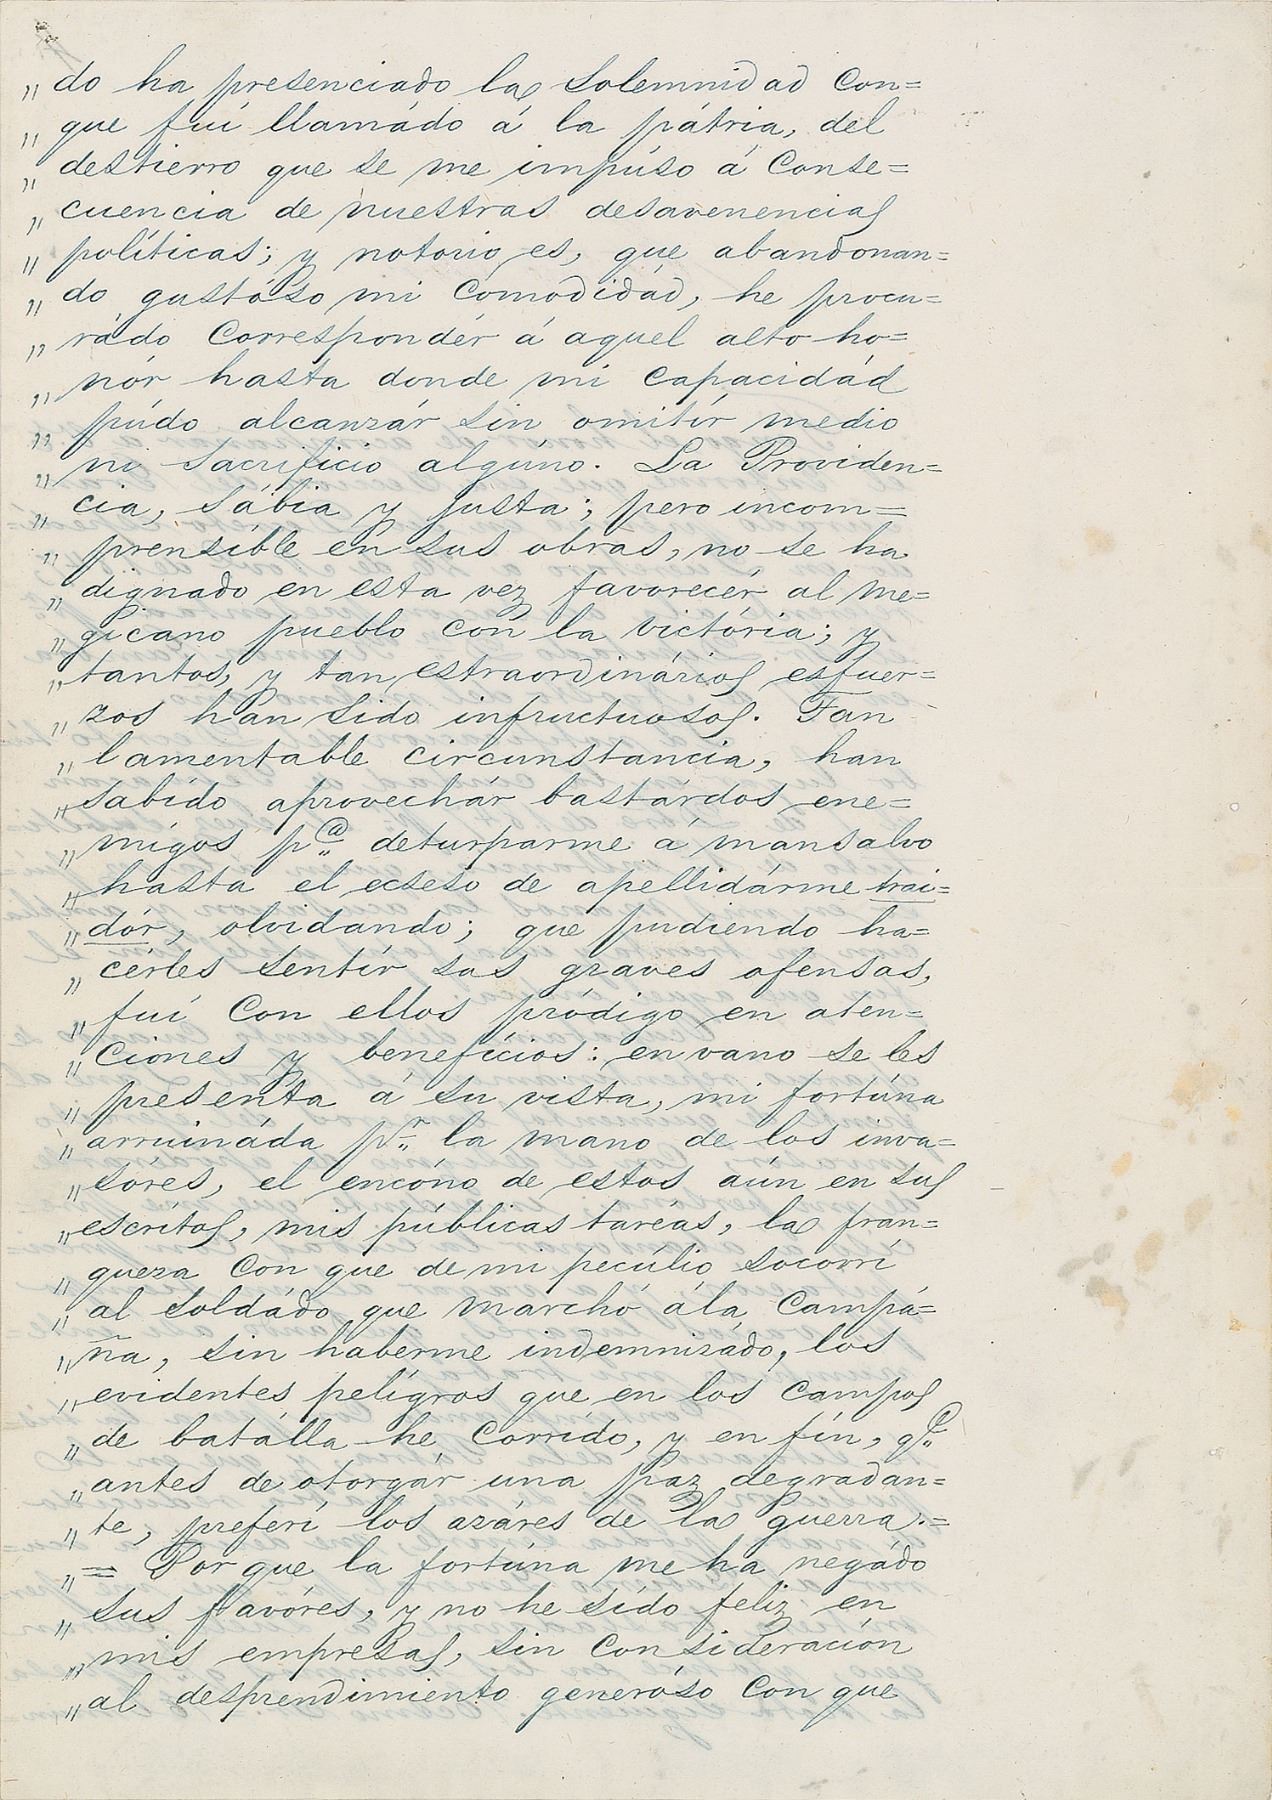 „ do ha presenciado la solemnidad con=
„ que fuí llamádo á la pátria, del
„ destierro que se me impúso á conse=
„ cuencia de nuestras desavenencias
„ políticas; y notorio es, que abandonan=
„ do gustóso mi comodidád, he procu=
„ rádo correspondér á aquel alto ho=
„ nór hasta donde mi capacidád
„ púdo alcanzár sin omitír medio
„ ni sacrificio algúno. La Providen=
„ cia, sábia y justa; pero incom=
„ prensíble en sus obras, no se ha
„ dignado en esta vez favorecér al me=
„ gicano pueblo con la victória; y
„ tantos, y tan estraordinários esfuer=
„ zos han sido infructuosos. Tan
„ lamentable circunstancia, han
„ sabído aprovechár bastárdos ene=
„ mígos p.ª deturparme á mansalvo
„ hasta el ecseso de apellidárme trai=
„ dór, olvidando; que pudiendo ha=
„ cérles sentír sus graves ofensas,
„ fuí con ellos pródigo en aten=
„ ciones y benefícios: en vano se les
„ presenta á su vista, mi fortúna
„ arruináda p.r la mano de los inva=
„ sóres, el encóno de estos aún en sus
„ escrítos, mis públicas taréas, la fran=
„ queza con que de mi pecúlio socorrí
„ al soldádo que marchó ála campá=
„ ña, sin haberme indemnizádo, los
„ evidentes pelígros que en los campos
„ de batálla he corrído, y en fín, q.e
„ antes de otorgár una paz degradan=
„ te, preferí los azáres de la guerra.=
„ = Por que la fortúna me ha negádo
„ sus favóres, y no he sído feliz en
„ mis empresas, sin consideración
„ al desprendimiento generóso con que